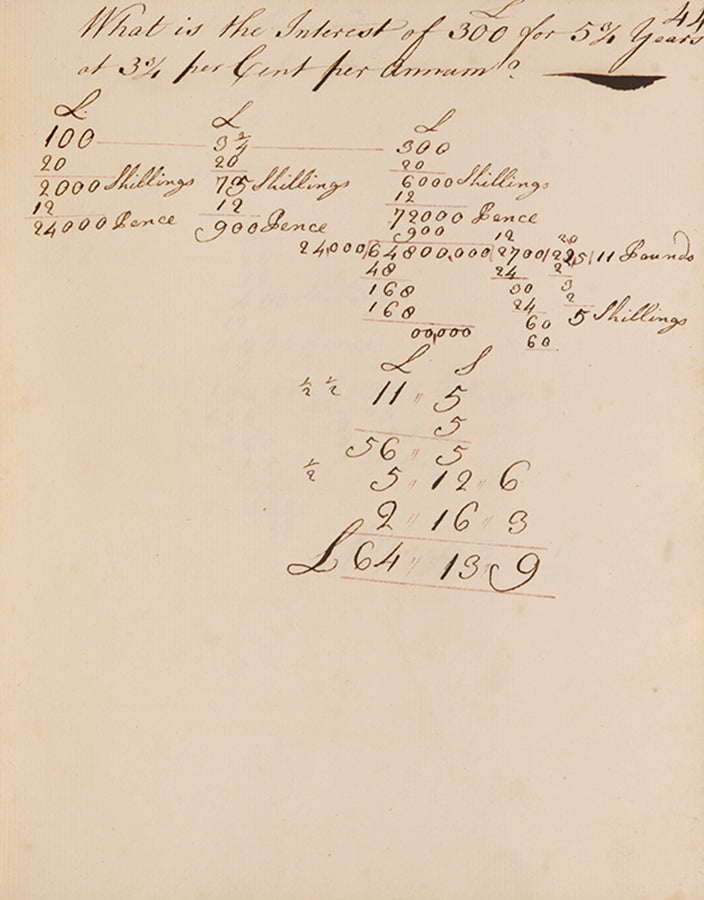 44
£
What is the Interest of 300 for 5 3/4 Years
at 3 3/4 per Cent per Annum?
£ £ £
100 3 3/4 300
20 20 20
2000 Shillings 75 Shillings 6000 Shillings
12 12 12
24000 Pence 900 Pence 72000 Pence
900 12 20
24,000)64800,000(2700(225(11 Pounds
48 24 2
168 30 3
168 24 2
00,000 60 5 Shillings
60
£ S
1/2 1/2 11 " 5
5
56 " 5
1/2 5 " 12 " 6
2 " 16 " 3
£ 64 " 13 " 9